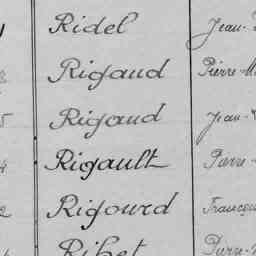 Ridel Jean-
Rigaud Pierre-M
Rigaud Jean-
Rigault Pierre-
Rigourd François
Ribet Pierre-